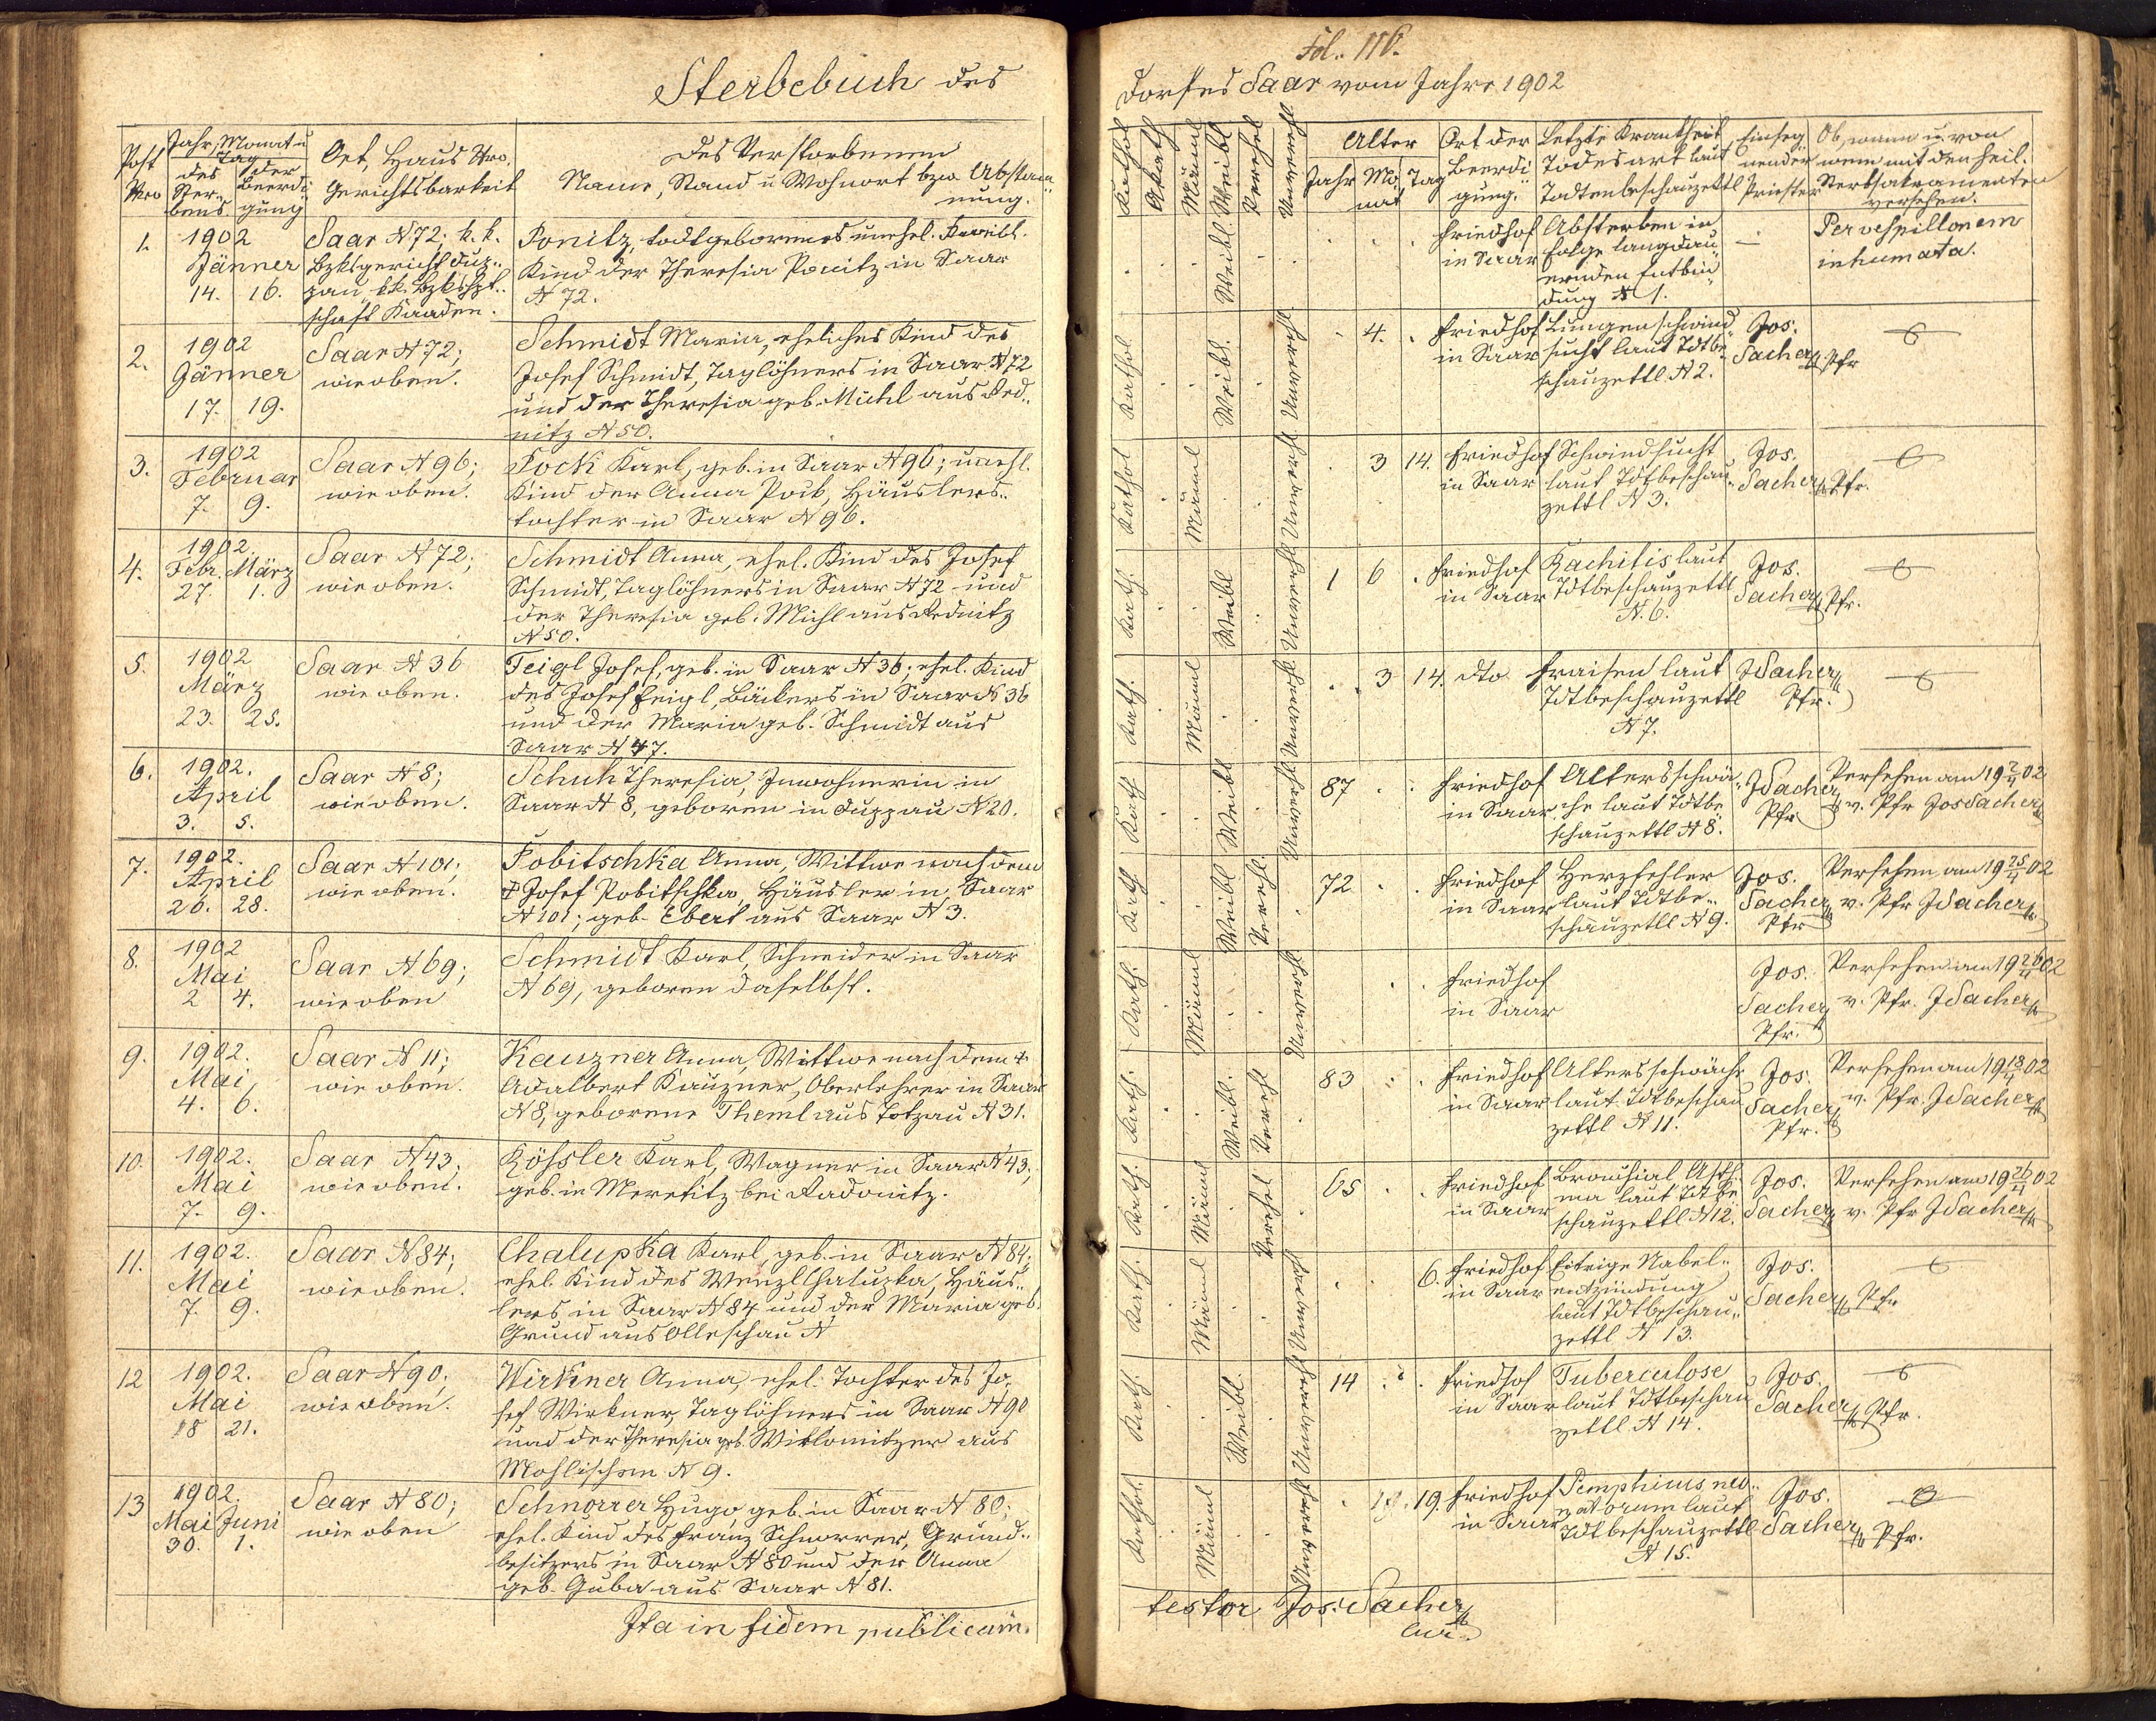 Sterbebuch des
Post Nro
Jahr, Monat u Tag
des Sterbens
der Beerdigung
Ort, Haus Nro.
Gerichtsbarkeit
des Verstorbenen
Name, Stand u Wohnort bzw. Abstammung.
1.
1902
Jänner
14. 16.
Saar N 72; k. k.
Bzksgericht Dup-
pau k.k. Bzkshpt-
schaft Kaaden.
Ponitz, todtgeborenes unehel. weibl.
Kind der Theresia Ponitz in Saar
N 72.
2.
1902
Jänner
17. 19.
Saar N 72;
wie oben.
Schmidt Maria, eheliches Kind des
Josef Schmidt, Taglöhners in Saar N 72
und der Theresia geb. Michl aus Red-
nitz N 50.
3.
1902
Februar
7. 9.
Saar N 96;
wie oben.
Pock Karl, geb. in Saar N 96; unehl.
Kind der Anna Pock, Häuslers-
tochter in Saar N 96.
4.
1902.
Febr. März
27. 1.
Saar N 72;
wie oben.
Schmidt Anna, ehel. Kind des Josef
Schmidt, Taglöhners in Saar N 72 und
der Theresia geb. Michl aus Rednitz
N 50.
5.
1902
März
23. 25.
Saar N 36
wie oben.
Feigl Josef, geb. in Saar N 36; ehel. Kind
des Josef Feigl, Bäckers in Saar N 36
und der Maria geb. Schmidt aus
Saar N 47.
6.
1902.
April
3. 5.
Saar N 8;
wie oben.
Schuh Theresia, Inwohnerin in
Saar N 8, geboren in Duppau N 20.
7.
1902.
April
26. 28.
Saar N 101;
wie oben.
Pobitschka Anna, Wittwe nach dem
† Josef Pobitschka, Häusler in Saar
N 101; geb. Ebert aus Saar N 3.
8.
1902
Mai
2 4.
Saar N 69;
wie oben
Schmidt Karl, Schneider in Saar
N 69, geboren daselbst.
9.
1902.
Mai
4. 6.
Saar N 11;
wie oben.
Kauzner Anna, Wittwe nach dem †
Adalbert Kauzner, Oberlehrer in Saar
N 8, geborene Theml aus Totzau N 31.
10.
1902.
Mai
7. 9.
Saar N 43;
wie oben.
Kössler Karl, Wagner in Saar N 43;
geb. in Meretitz bei Radonitz.
11.
1902.
Mai
7. 9.
Saar N 84;
wie oben.
Chalupka Karl, geb. in Saar N 84;
ehel. Kind des Wenzl Chalupka, Häus-
lers in Saar N 84 und der Maria geb.
Grund aus Olleschau N
12
1902.
Mai
18 21.
Saar N 90;
wie oben.
Wirkner Anna, ehel. Tochter des Jo-
sef Wirkner, Taglöhners in Saar N 90
und der Theresia geb. aus
Mohlischen N 9.
13
1902.
Mai Juni
30. 1.
Saar N 80;
wie oben
Schnorrer Hugo, geb. in Saar N 80;
ehel. Kind des Franz Schnorrer, Grund-
besitzers in Saar N 80 und der Anna
geb. Guba aus Saar N 81.
Ita in fidem publicam.
Fol. 116.
Dorfes Saar vom Jahre 1902
Kathol
Akath
Männl
Weibl
Verehel
Unverehl
Alter
Jahr Mo-nat Tag
Ort der Beerdi-gung.
Letzte Krankheit
Todesart laut
Todtenbeschauzettl
Einseg-
nender
Priester
Ob, wann u. von
wem mit den heil.
Sterbsakramenten
versehen.
Weibl
Friedhof
in Saar
Absterben in
Folge langdau-
ernden Entbin-
dung N 1.
—
Per vespillonem
inhumata.
Kathol
Weibl.
Unverehl
4.
Friedhof
in Saar
Lungenschwind-
sucht laut Tdtbe-
schauzettl. N 2.
Jos.
Sacher Pfr
Kathol
Männl
Unverehl
3 14.
Friedhof
in Saar
Schwindsucht
laut Tdtbeschau-
zettl N 3.
Jos.
Sacher Pfr.
Kath.
Weibl
Unverehl
1 6
Friedhof
in Saar
Rachitis laut
Tdtbeschauzettl
N. 6.
Jos.
Sacher Pfr.
Kath.
Männl
Unverehl
3 14.
dto
Fraisen laut
Tdtbeschauzettl
N 7.
J Sacher
Pfr.
Kath
Weibl
Unverehl
87
Friedhof
in Saar
Altersschwä-
che laut Tdtbe-
schauzettl N 8.
J Sacher
Pfr
Versehen am 19 2/4 02
v. Pfr Jos Sacher
Kath
Weibl
Verehl
72
Friedhof
in Saar
Herzfehler
laut Tdtbe-
schauzettl N 9.
Jos.
Sacher
Pfr
Versehen am 19 25/4 02
v. Pfr J Sacher
Kath.
Männl
Unverehl
Friedhof
in Saar
Jos.
Sacher
Pfr.
Versehen am 19 26/4 02
v. Pfr. J Sacher
Kath.
Weibl.
Verehl
83
Friedhof
in Saar
Altersschwäche
laut Tdtbeschau-
zettl N 11.
Jos.
Sacher
Pfr.
Versehen am 19 18/4 02
v. Pfr. J Sacher
Kath.
Männl
Verehel
65
Friedhof
in Saar
Bronchial Asth-
ma laut Tdtbe-
schauzettl N 12.
Jos.
Sacher
Versehen am 19 26/4 02
v. Pfr J Sacher
Kath.
Männl
Unverehl
6.
Friedhof
in Saar
Eitrige Nabel-
entzündung
laut Tdtbeschau-
zettl N 13.
Jos.
Sacher Pfr
Kath.
Weibl.
Unverehl
14
Friedhof
in Saar
Tuberculose
laut Tdtbeschau-
zettl N 14.
Jos.
Sacher Pfr.
Kathol.
Männl
Unverehl
19.
Friedhof
in Saar
Pemphicus neo-
natorum laut
Tdtbeschauzettl
N 15.
Jos.
Sacher Pfr.
testor Jos. Sacher